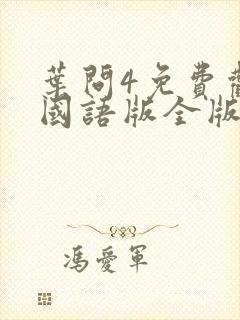 葉問4免費
國語版全版
馮愛軍